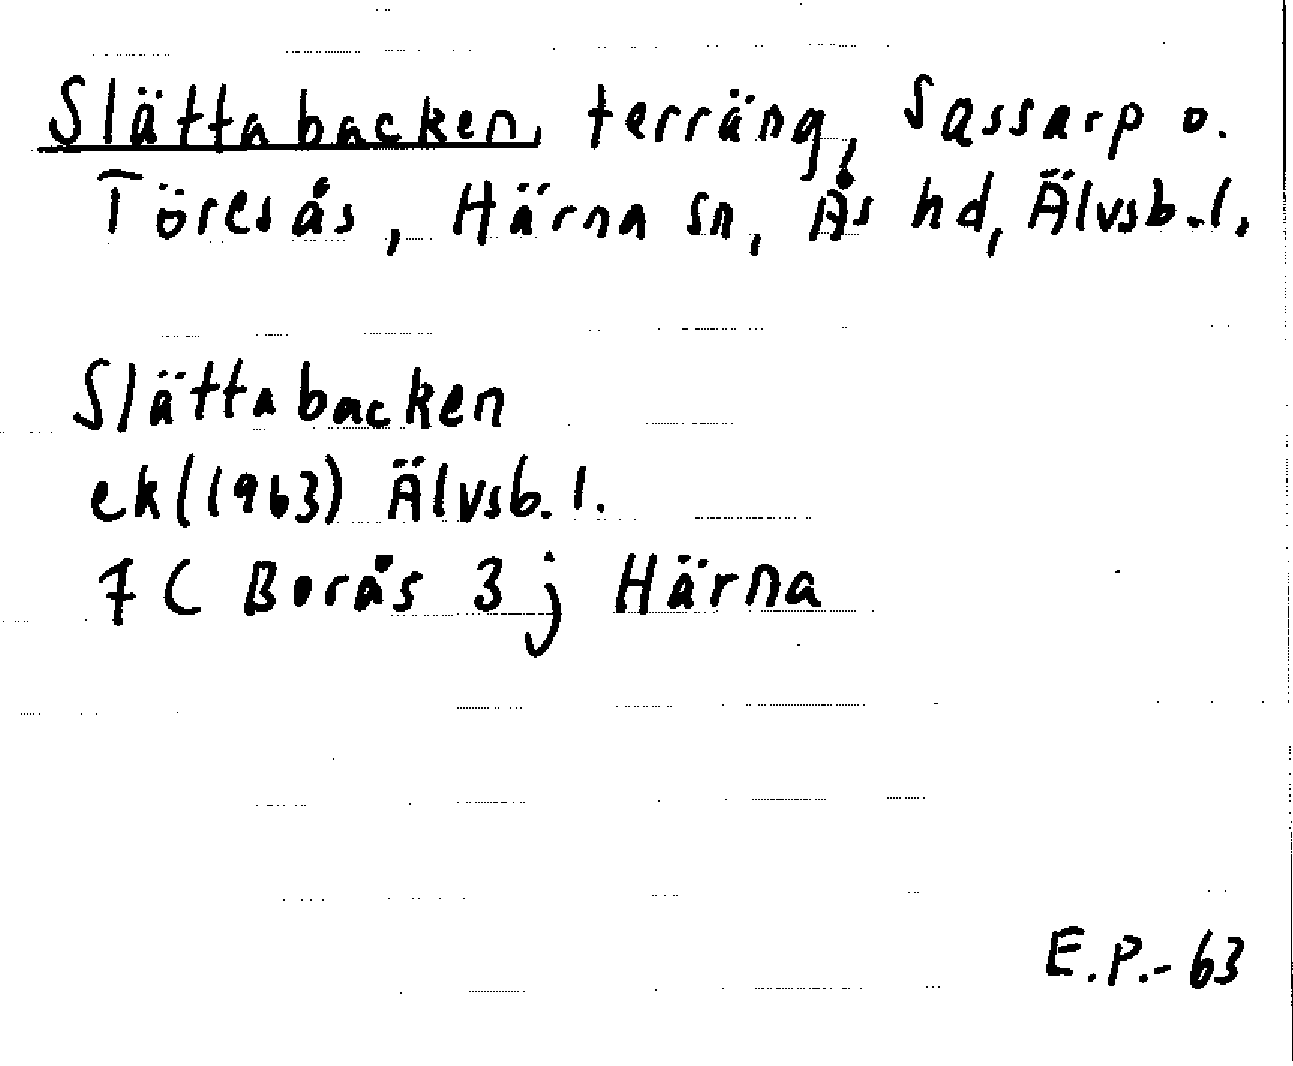 Slättabacken, terräng, Sassarp o.
Töresås, Härna sn, Ås hd, Älvsb. l.
Slättabacken
ek (1963) Älvsb. l.
7 C Borås 3 j Härna
E.P.-63